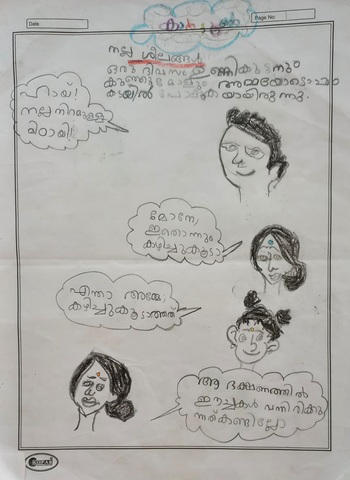 Date
Page No:
കാർട്ടൂൺ
നല്ല ശീലങ്ങൾ
ഒരു ദിവസം ഉണ്ണികുട്ടനും
കുഞ്ഞുമോളും അമ്മയോടൊപ്പം
കടയിൽ പോകുകയായിരുന്നു.
ഹായ്!
നല്ല നിറമുള്ള
മിഠായി!
മോനേ,
ഇതൊന്നും
കഴിച്ചുകൂടാ
എന്താ അമ്മേ,
കഴിച്ചുകൂടാത്തത്
ആ ഭക്ഷണത്തിൽ
ഈച്ചകൾ വന്നിരിക്കു
ന്നത് കണ്ടില്ലേ